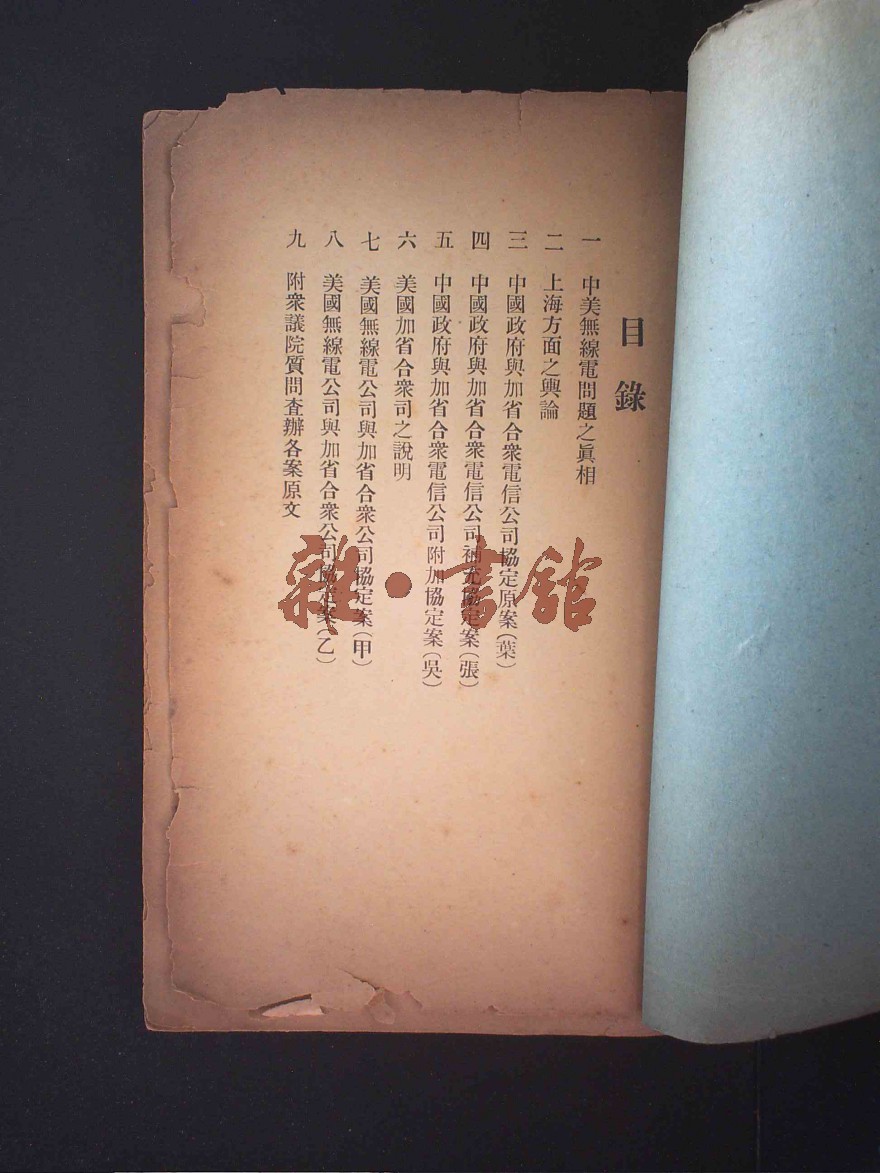 目錄
一 中美無線電問題之眞相
二 上海方面之輿論
三 中國政府與加省合衆電信公司協定原案(葉)
四 中國政府與加省合衆電信公司補充協定案(張)
五 中國政府與加省合衆電信公司附加協定案(吳)
六 美國加省合衆司之說明
七 美國無線電公司與加省合衆公司協定案(甲)
八 美國無線電公司與加省合衆公司協定案(乙)
九 附衆議院質問査辦各案原文
雜·書館